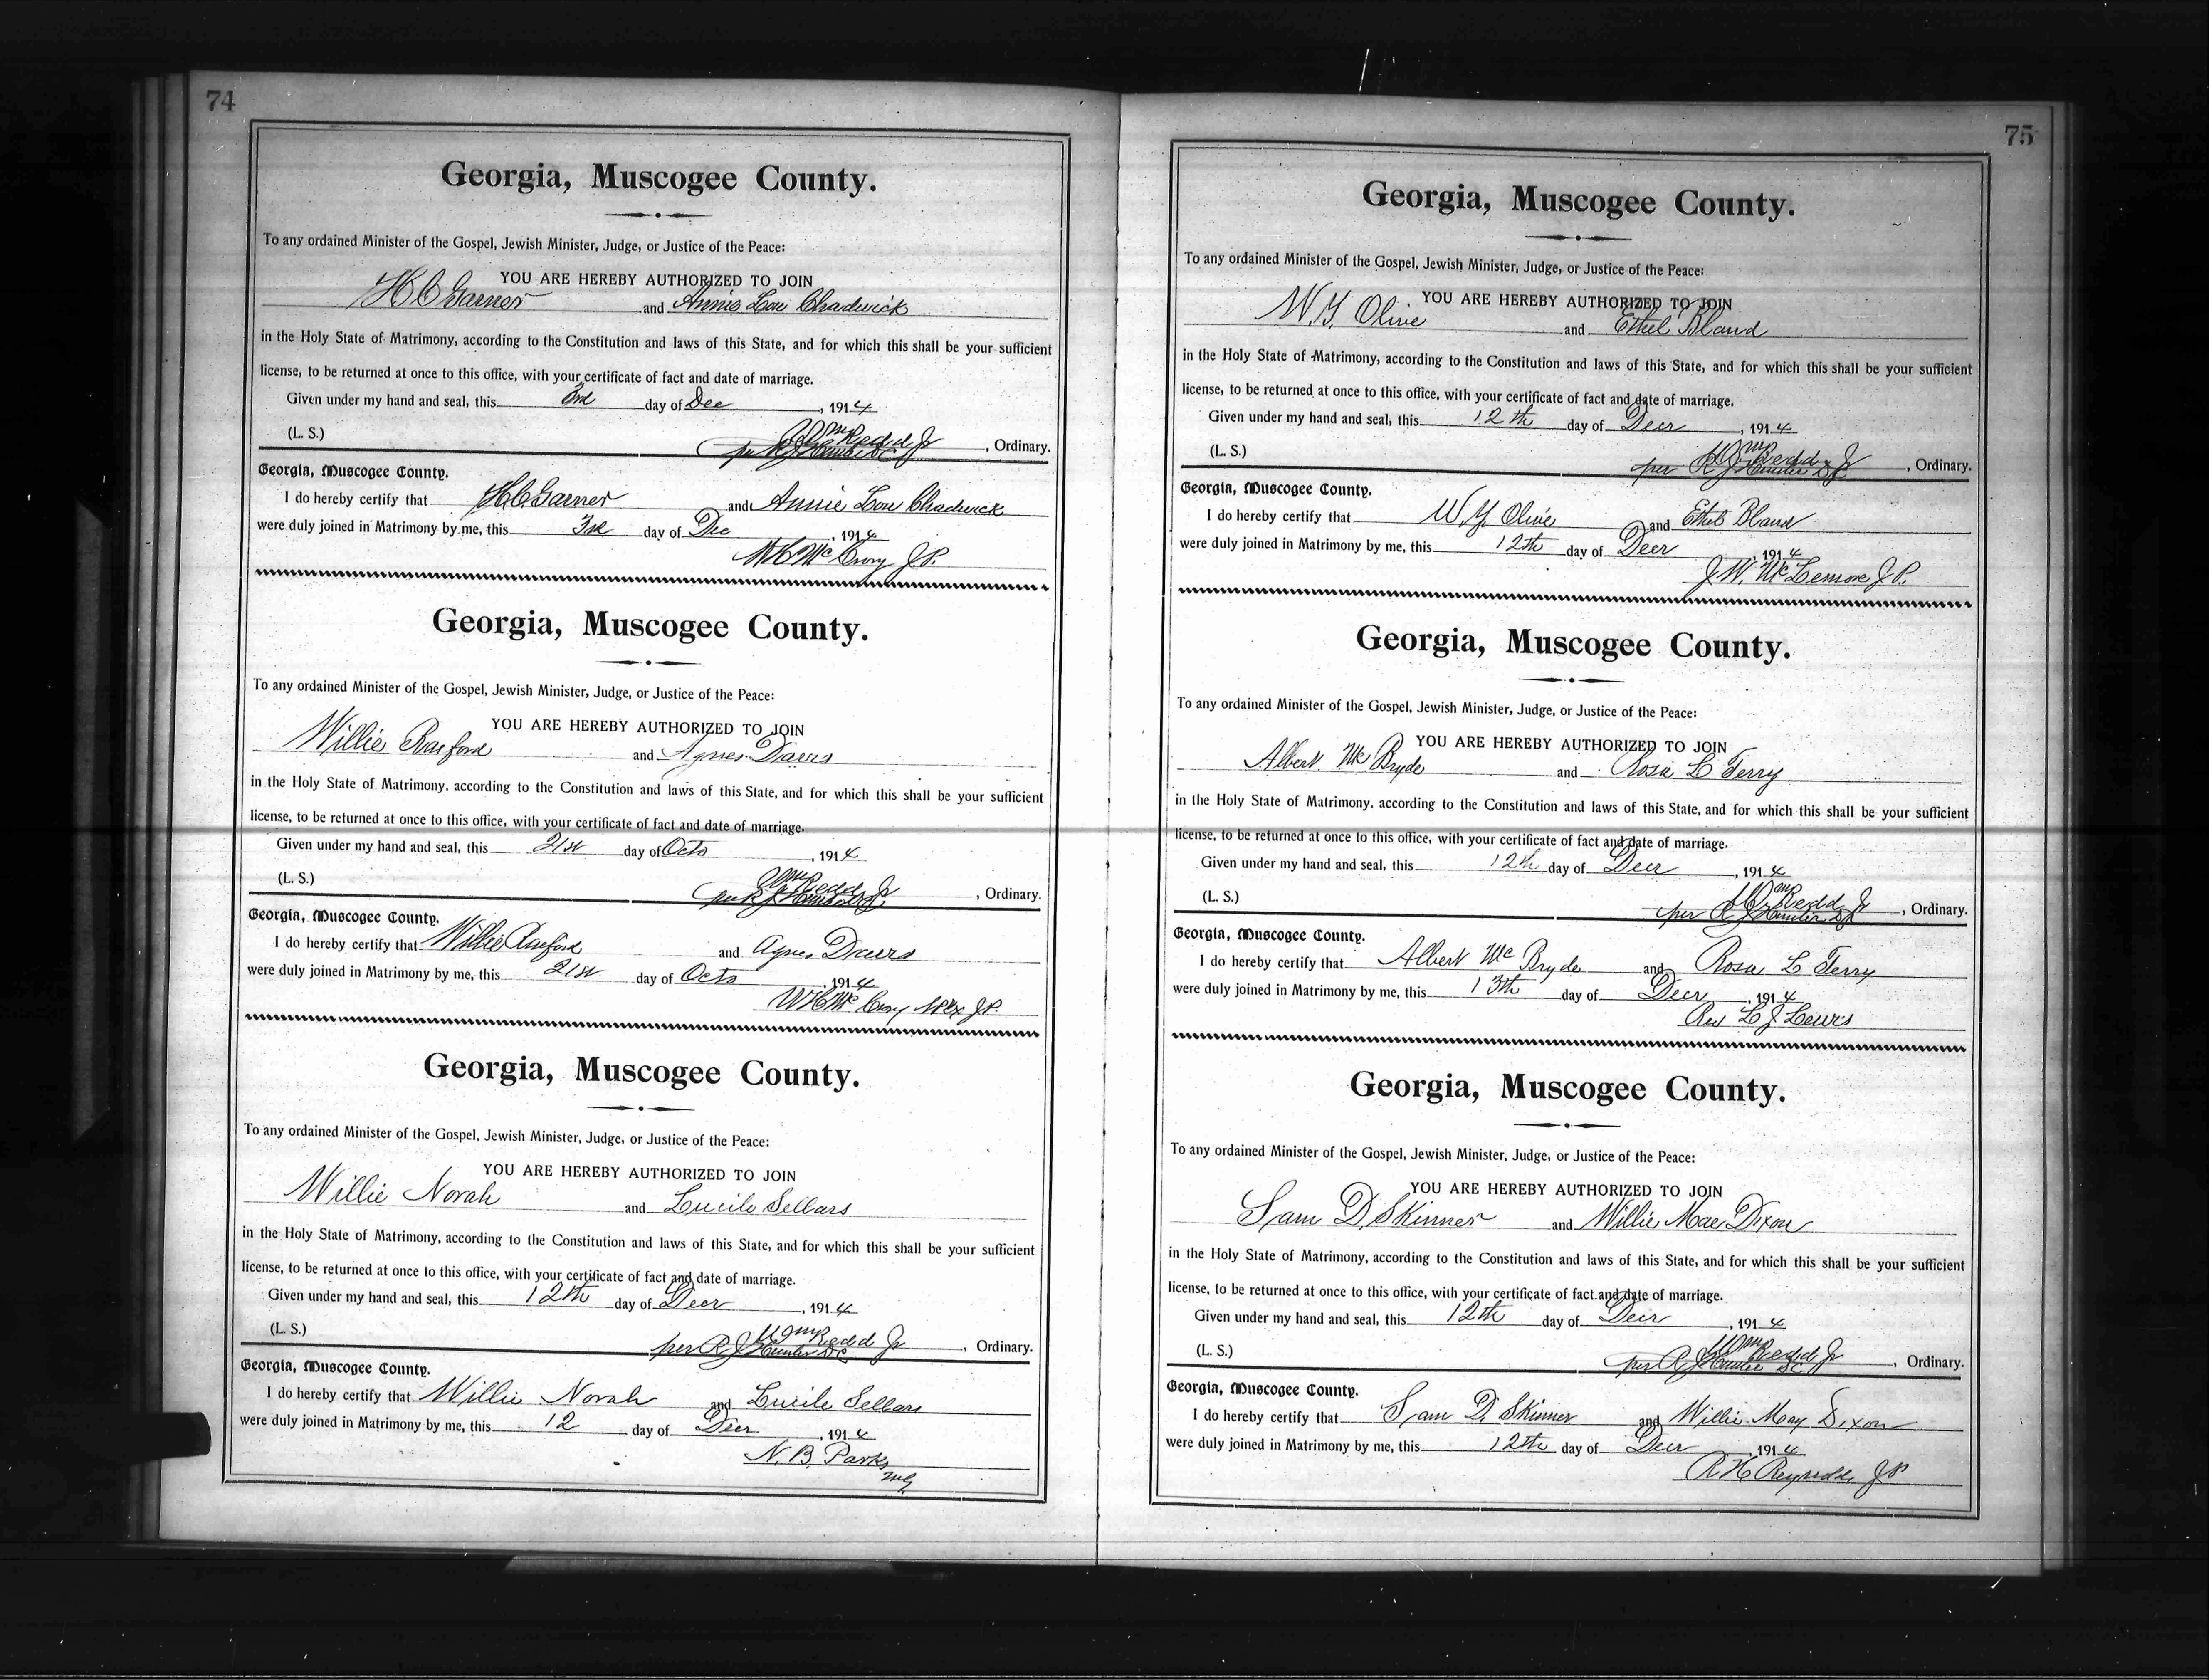 74
Georgia, Muscogee County.
To any ordained Minister of the Gospel, Jewish Minister, Judge, or Justice of the Peace:
YOU ARE HEREBY AUTHORIZED TO JOIN
H C Garner and Annie Lou Chadwick
in the Holy State of Matrimony, according to the Constitution and laws of this State, and for which this shall be your sufficient
license, to be returned at once to this office, with your certificate of fact and date of marriage.
Given under my hand and seal, this 3rd day of Dec, 1914
(L. S.) Wm Redd Jr, Ordinary.
per R J Hunter DC
Georgia, Muscogee County.
I do hereby certify that H. C. Garner and Annie Lou Chadwick
were duly joined in Matrimony by me, this 3rd day of Dec, 1914
W C McCrory J.P.
Georgia, Muscogee County.
To any ordained Minister of the Gospel, Jewish Minister, Judge, or Justice of the Peace:
YOU ARE HEREBY AUTHORIZED TO JOIN
Willie Raiford and Agnes Davis
in the Holy State of Matrimony, according to the Constitution and laws of this State, and for which this shall be your sufficient
license, to be returned at once to this office, with your certificate of fact and date of marriage.
Given under my hand and seal, this 21st day of Octo, 1914
(L. S.) Wm Redd Jr, Ordinary.
per R J Hunter DC
Georgia, Muscogee County.
I do hereby certify that Willie Raiford and Agnes Davis
were duly joined in Matrimony by me, this 21st day of Octo, 1914
W C McCrory J.P.
Georgia, Muscogee County.
To any ordained Minister of the Gospel, Jewish Minister, Judge, or Justice of the Peace:
YOU ARE HEREBY AUTHORIZED TO JOIN
Willie Norah and Lucile Sellars
in the Holy State of Matrimony, according to the Constitution and laws of this State, and for which this shall be your sufficient
license, to be returned at once to this office, with your certificate of fact and date of marriage.
Given under my hand and seal, this 12th day of Decr, 1914
(L. S.) Wm Redd Jr, Ordinary.
per R J Hunter DC
Georgia, Muscogee County.
I do hereby certify that Willie Norah and Lucile Sellars
were duly joined in Matrimony by me, this 12 day of Decr, 1914
N. B. Parks
M.G.
75
Georgia, Muscogee County.
To any ordained Minister of the Gospel, Jewish Minister, Judge, or Justice of the Peace:
YOU ARE HEREBY AUTHORIZED TO JOIN
W. Y. Olive and Ethel Bland
in the Holy State of Matrimony, according to the Constitution and laws of this State, and for which this shall be your sufficient
license, to be returned at once to this office, with your certificate of fact and date of marriage.
Given under my hand and seal, this 12th day of Decr, 1914
(L. S.) Wm Redd Jr, Ordinary.
per R J Hunter DC
Georgia, Muscogee County.
I do hereby certify that W. Y. Olive and Ethel Bland
were duly joined in Matrimony by me, this 12th day of Decr, 1914
J. W. McLemore J.P.
Georgia, Muscogee County.
To any ordained Minister of the Gospel, Jewish Minister, Judge, or Justice of the Peace:
YOU ARE HEREBY AUTHORIZED TO JOIN
Albert McBryde and Rosa L Terry
in the Holy State of Matrimony, according to the Constitution and laws of this State, and for which this shall be your sufficient
license, to be returned at once to this office, with your certificate of fact and date of marriage.
Given under my hand and seal, this 12th day of Decr, 1914
(L. S.) Wm Redd Jr, Ordinary.
per R J Hunter DC
Georgia, Muscogee County.
I do hereby certify that Albert McBryde and Rosa L Terry
were duly joined in Matrimony by me, this 13th day of Decr, 1914
Rev L J Lewis
Georgia, Muscogee County.
To any ordained Minister of the Gospel, Jewish Minister, Judge, or Justice of the Peace:
YOU ARE HEREBY AUTHORIZED TO JOIN
Sam D. Skinner and Willie Mae Dixon
in the Holy State of Matrimony, according to the Constitution and laws of this State, and for which this shall be your sufficient
license, to be returned at once to this office, with your certificate of fact and date of marriage.
Given under my hand and seal, this 12th day of Decr, 1914
(L. S.) Wm Redd Jr, Ordinary.
per R J Hunter DC
Georgia, Muscogee County.
I do hereby certify that Sam D. Skinner and Willie May Dixon
were duly joined in Matrimony by me, this 12th day of Decr, 1914
R H Reynolds JP